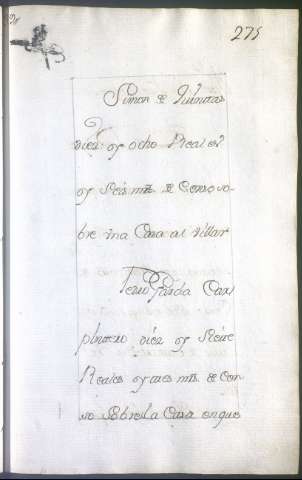 275
Simon de Quintas
diez y ocho Reales
y seis mrs. de Censo so
bre una Casa al villar
Pedro Garcia Car
pintero diez y siete
Reales y tres mrs. de Cen
so sobre la Casa en que